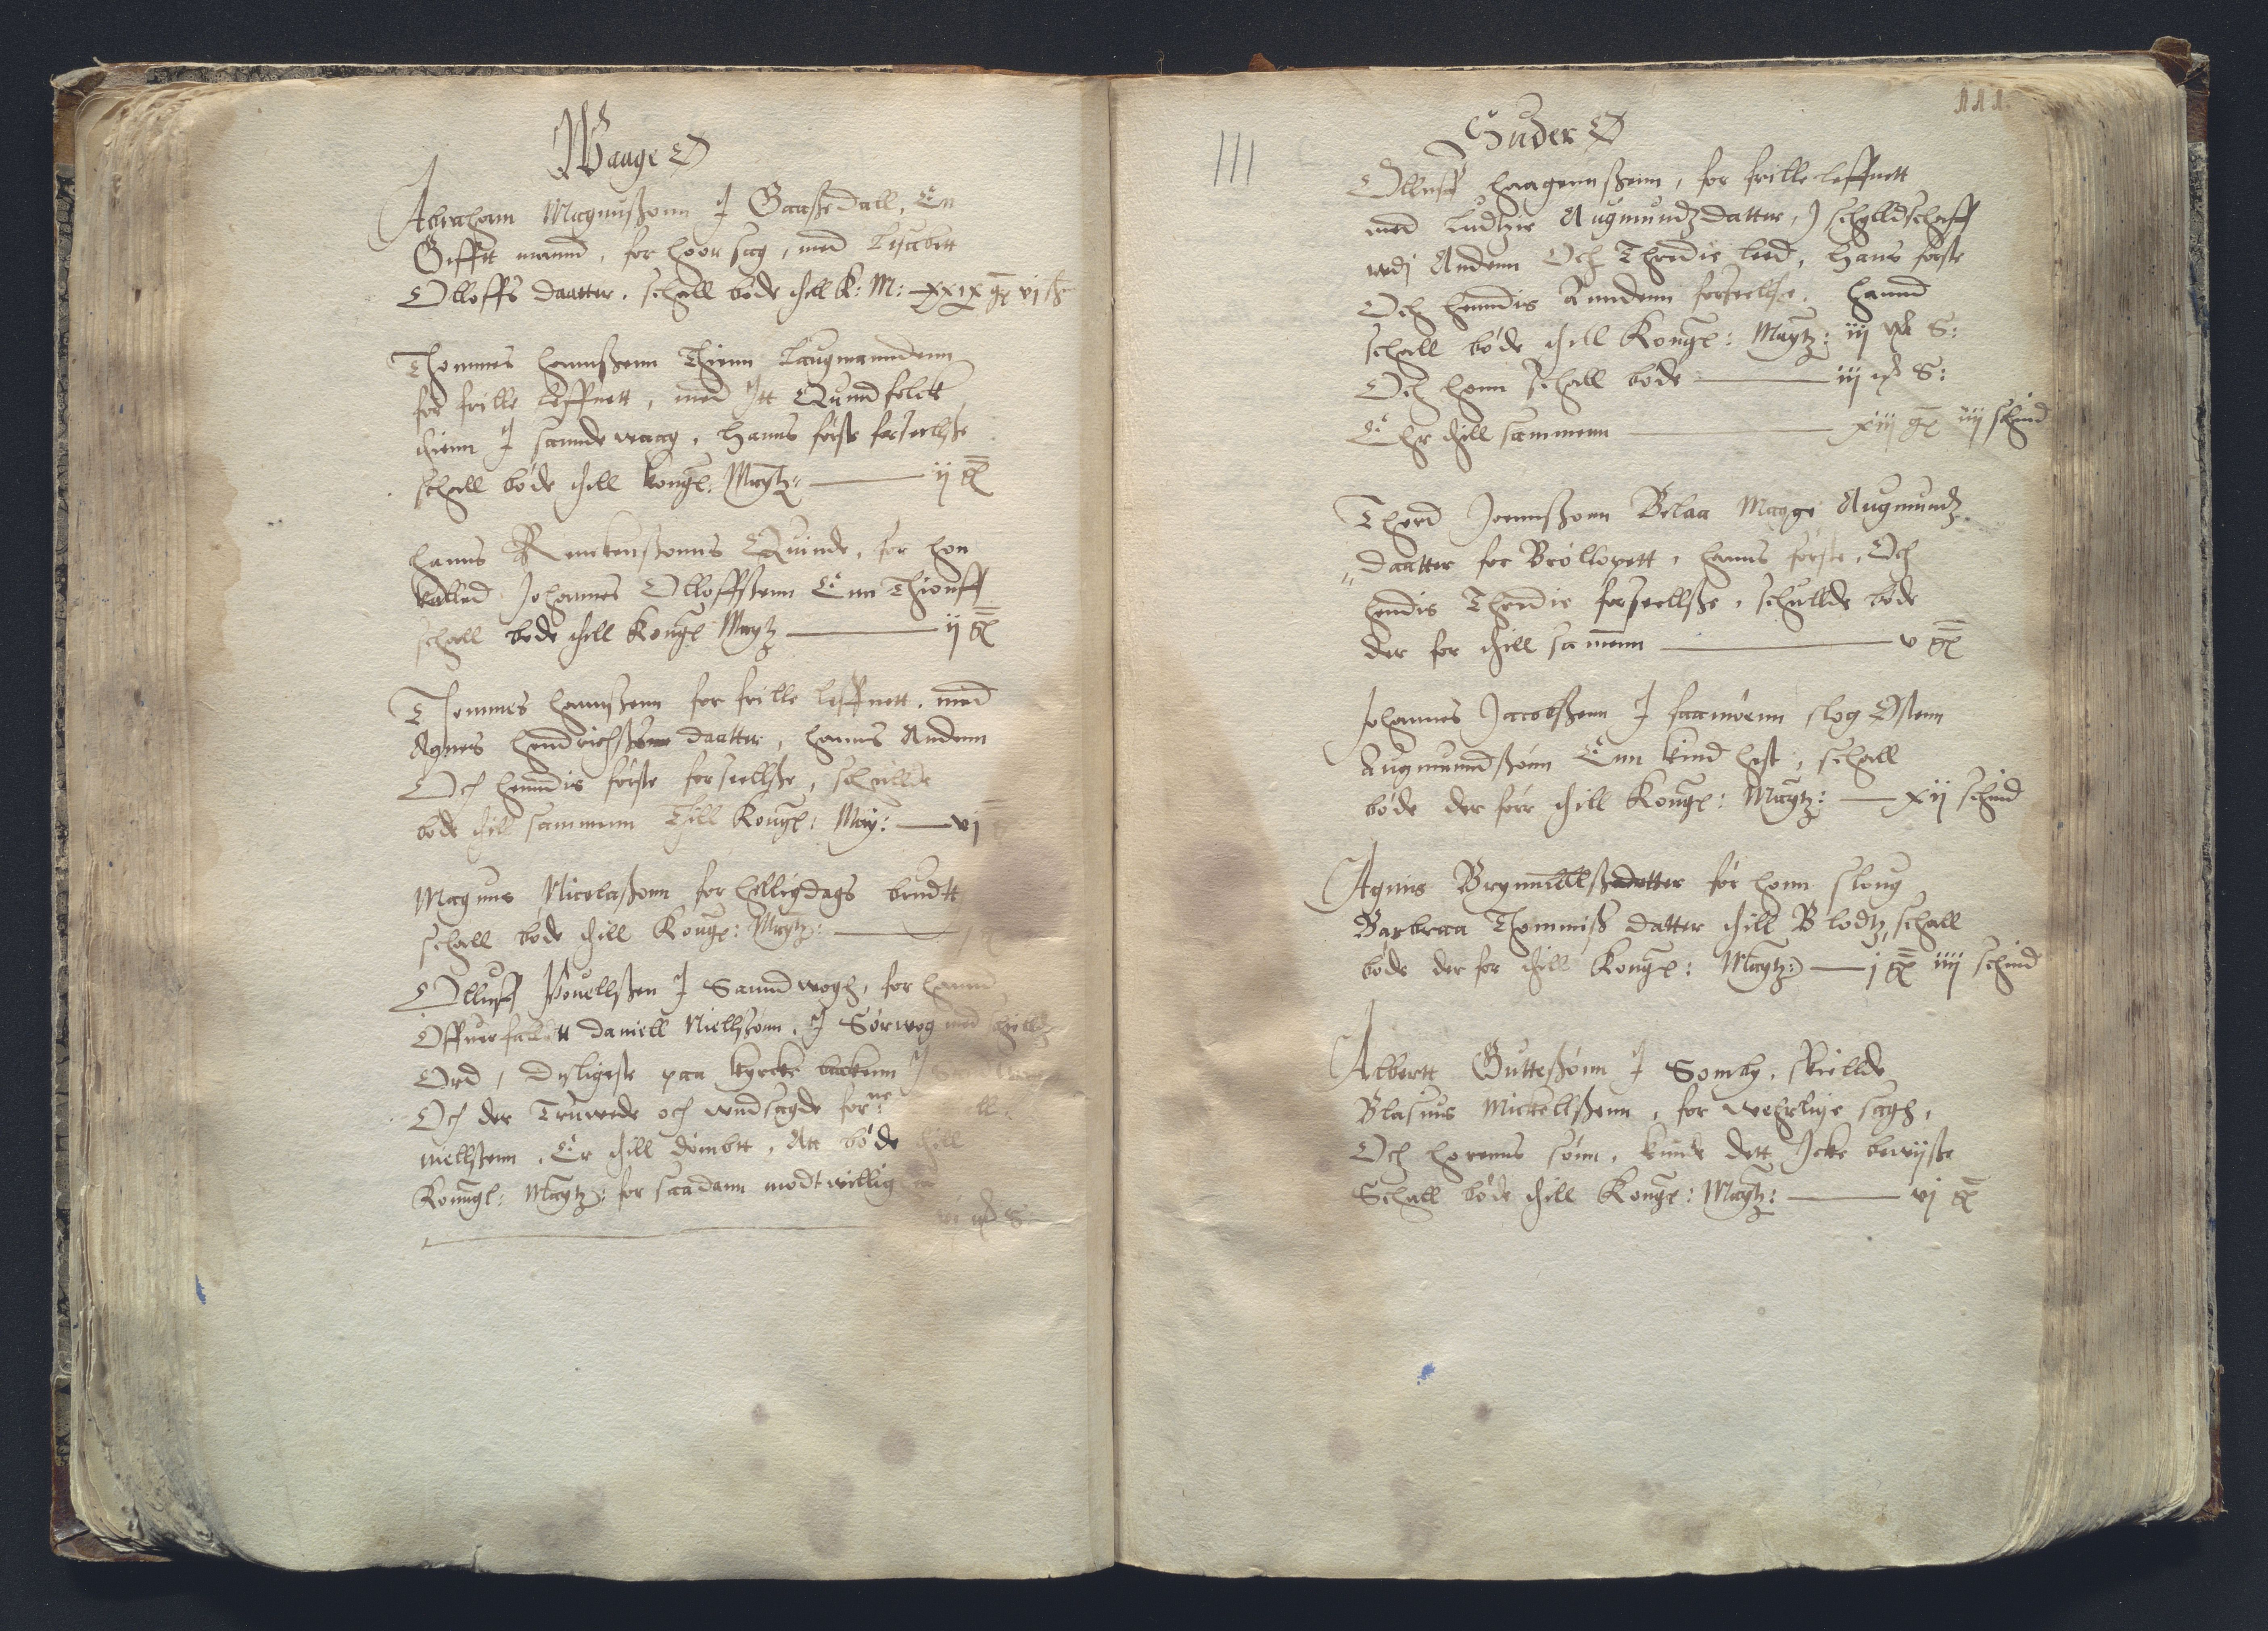 Waage Ø
Abraham Magnußonn J Gaaße Dall, En
Gifftt mannd, for hoor sag, med Lisabett
Olloffs daatter. schall böde thill K: M: xxix g vj ß
Thommes hannßenn Thienn Laugmanndenn
for frille leffnett, med Jtt Quind folck
thienn J sannde waag, hanns förste forseellße
schall böde thill kongl: Maytz: ij
hanns Renckenßonns Quinde, for hon
kalled Johannes Olloffßenn Enn Thiouff
schall bode thill Kongl Maytz ij
Thommes hannßenn for frille leffnett. med
Agnes hendrichß daatter, hanns Andenn
Och henndis förste forseellße, schullde
böde thill sammenn Thill Kongl: May: vj
Magnus Nicolaßonn for helligdags brudtt
schall böde thill Kongl: Maytz:
Olluff Pouellßen J Sannd wogh, for hannd
Offuerfaltt Daniell Niellßonn, J Sörwog med
Ord, Disligeste paa kyrcke backenn J
Och der Truwede och wndsagde forne:
niellßenn, Er thill dömbtt, Att böde thill
Konngl: Maytz: for saadann modtwillig
vj S
111
111
Suder Ø
Olluff haagennßenn, for frille leffnett
med Ludtzie Augmundz datter, J schylldschaff
wdj Andenn Och Thredie leed, hans förste
Och henndis Anndenn forseellße, hannd
schall böde thill Kongl: Maytz: iij S:
Och honn schall böde iij S:
Ehr thill sammenn xiij g iiij schind
Thord Joennßonn Belaa Magge Augmundz
daatter for Bröllopett, hanns förste, Och
hendis Thredie forseellße, schullde böde
der for thill samenn v
Johannes Jacobßenn J faamöenn slog Østenn
Augmunndßönn Enn kind hest, schall
böde der forr thill Kongl: Maytz: xij schind
Agnis Brynnilllßdatter för honn sloug
Barbraa Thommiß datter thill Blodtz, schall
böde der for thill Kongl: Maytz: j iiij schind
Albertt Gutteßönn J Somby, skiellde
Blasius Mickellßenn, for wehrlige sagh,
Och horenns sönn, kunde dett Jcke bewijße
Schall böde thill Kongl: Maytz: vj